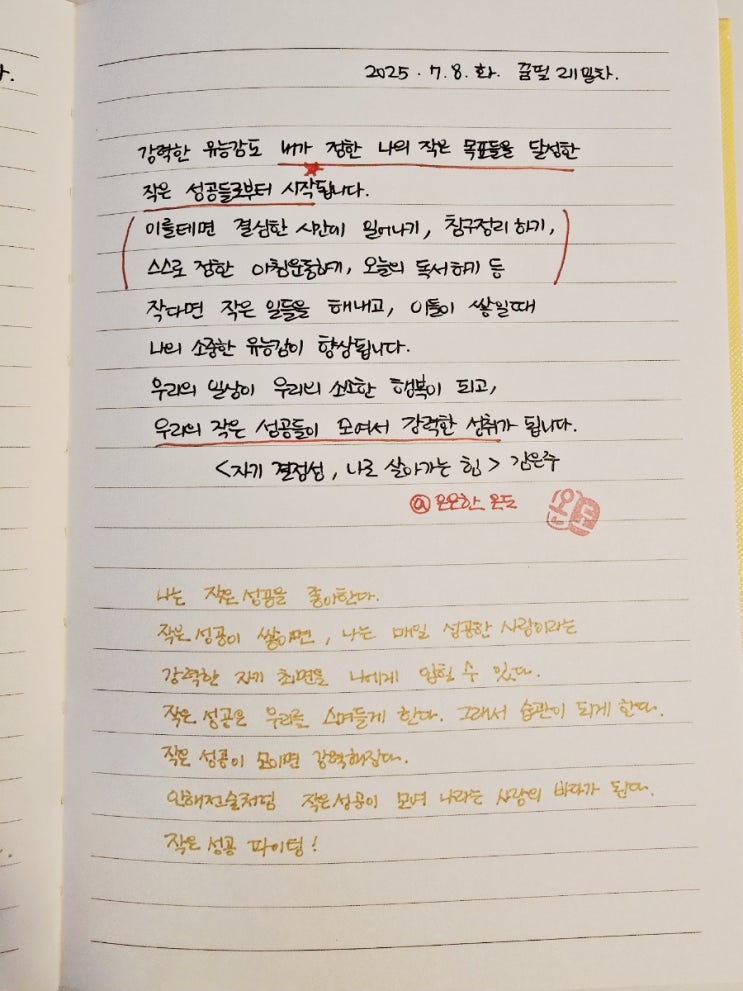 2025. 7. 8. 화. 꿈필 211일차.
강력한 유능감도 내가 정한 나의 작은 목표들을 달성한
작은 성공들로부터 시작됩니다.
(이를테면 결심한 시간에 일어나기, 침구정리 하기,
스스로 정한 아침운동하기, 오늘의 독서하기 등)
작다면 작은 일들을 해내고, 이들이 쌓일때
나의 소중한 유능감이 향상됩니다.
우리의 일상이 우리의 소소한 행복이 되고,
우리의 작은 성공들이 모여서 강력한 성취가 됩니다.
<자기 결정성, 나로 살아가는 힘> 김은주
@ 은은한 온도
나는 작은 성공을 좋아한다.
작은 성공이 쌓이면, 나는 매일 성공한 사람이라는
강력한 자기 최면을 나에게 입힐 수 있다.
작은 성공은 우리를 스며들게 한다. 그래서 습관이 되게 한다.
작은 성공이 모이면 강력해진다.
인해전술처럼 작은 성공이 모여 나라는 사람의 바다가 된다.
작은 성공 파이팅!